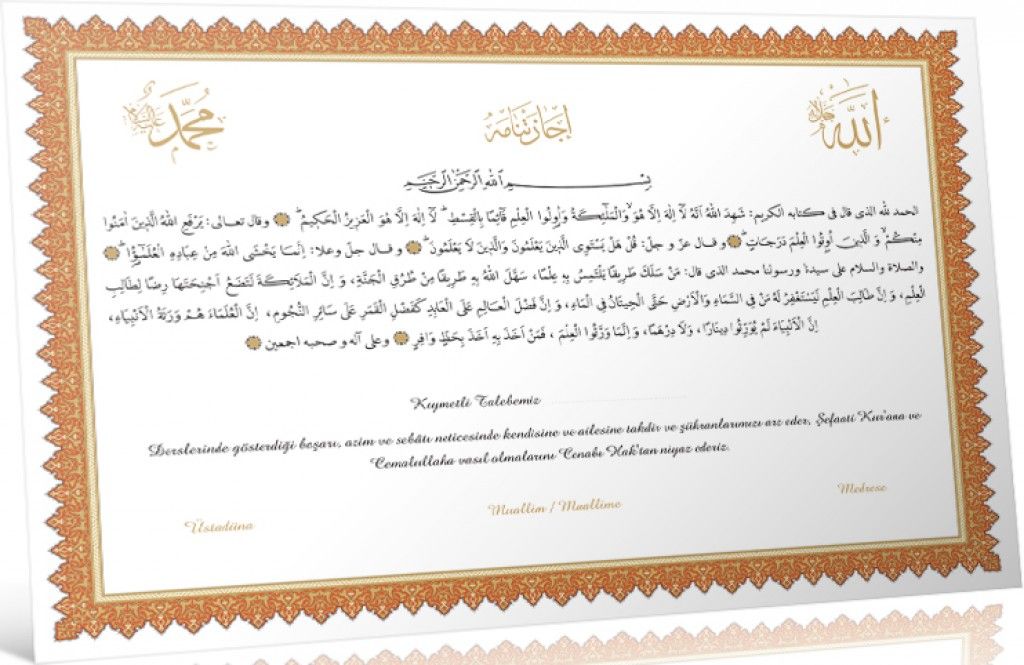 الله جل جلاله
اجازتنامه
محمد عليه السلام
بِسْمِ اللهِ الرَّحْمٰنِ الرَّحِيمِ
الحمد لله الذى قال فى كتابه الكريم: شَهِدَ اللهُ اَنَّهُ لَا اِلٰهَ اِلَّا هُوَ وَالْمَلٰٓئِكَةُ وَاُولُوا الْعِلْمِ قَٓائِمًا بِالْقِسْطِ لَٓا اِلٰهَ اِلَّا هُوَ الْعَزِيزُ الْحَكِيمُ وقال تعالى: يَرْفَعِ اللهُ الَّذِينَ اٰمَنُوا
مِنْكُمْ وَالَّذِينَ اُوتُوا الْعِلْمَ دَرَجَاتٍ و قال عز و جل: قُلْ هَلْ يَسْتَوِى الَّذِينَ يَعْلَمُونَ وَالَّذِينَ لَا يَعْلَمُونَ و قال جل وعلا: اِنَّمَا يَخْشَى اللهَ مِنْ عِبَادِهِ الْعُلَمٰٓؤُا
والصلاة والسلام على سيدنا ورسولنا محمد الذى قال: مَنْ سَلَكَ طَرِيقًا يَلْتَمِسُ بِهِ عِلْمًا، سَهَّلَ اللهُ بِهِ طَرِيقًا مِنْ طُرُقِ الْجَنَّةِ، وَ اِنَّ الْمَلَائِكَةَ لَتَضَعُ اَجْنِحَتَهَا رِضًا لِطَالِبِ
الْعِلْمِ، وَ اِنَّ طَالِبَ الْعِلْمِ لَيَسْتَغْفِرُ لَهُ مَنْ فِى السَّمَاءِ وَالْاَرْضِ حَتَّى الْحِيتَانُ فِى الْمَاءِ، وَ اِنَّ فَضْلَ الْعَالِمِ عَلَى الْعَابِدِ كَفَضْلِ الْقَمَرِ عَلَى سَائِرِ النُّجُومِ، اِنَّ الْعُلَمَاءَ هُمْ وَرَثَةُ الْاَنْبِيَاءِ،
اِنَّ الْاَنْبِيَاءَ لَمْ يُوَرِّثُوا دِينَارًا، وَلَا دِرْهَمًا، وَ اِنَّمَا وَرَّثُوا الْعِلْمَ ، فَمَنْ اَخَذَ بِهِ اَخَذَ بِحَظٍّ وَافِرٍ وعلى آله و صحبه اجمعين
Kıymetli Talebemiz
Derslerinde gösterdiği başarı, azim ve sebâtı neticesinde kendisine ve ailesine takdir ve şükranlarımızı arz eder, Şefaati Kur'ana ve
Cemalullaha vasıl olmalarını Cenabı Hak'tan niyaz ederiz.
Üstadüna
Muallim / Muallime
Medrese